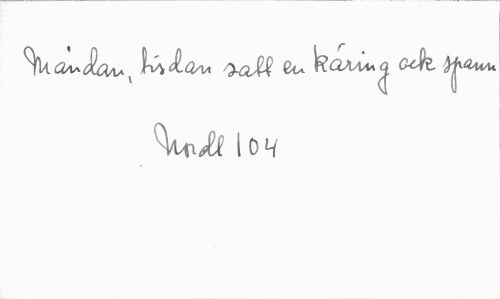 Måndan, tisdan satt en käring ock spann
Nordl 104